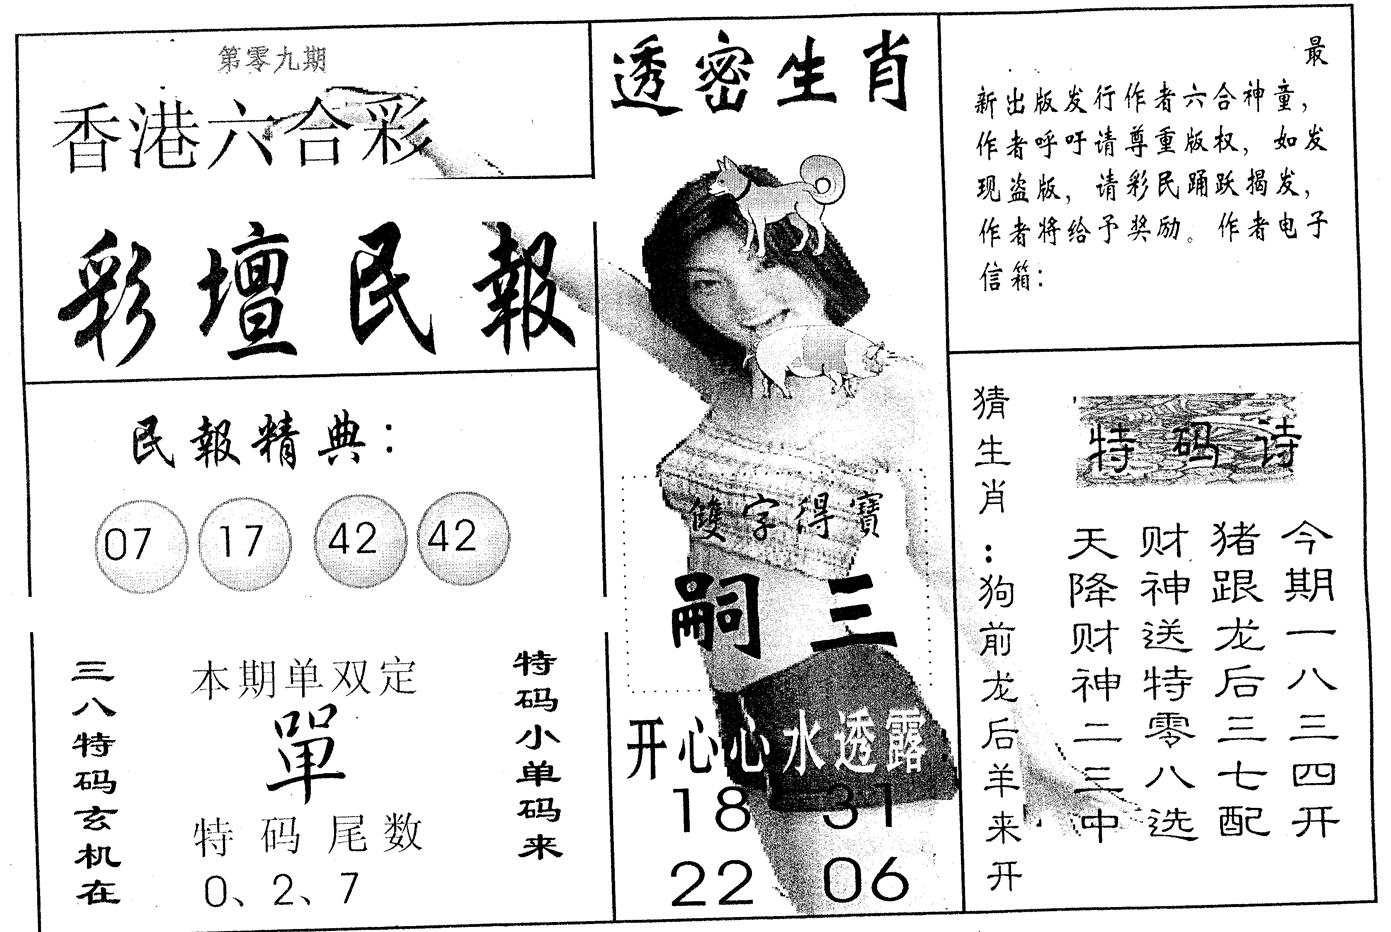 第零九期
香港六合彩
彩壇民報
民報精典：
07 17 42 42
三八特码玄机在
本期单双定
單
特码尾数
0、2、7
特码小单码来
透密生肖
雙字得寶
嗣三
开心心水透露
18 31
22 06
最
新出版发行作者六合神童，
作者呼吁请尊重版权，如发
现盗版，请彩民踊跃揭发，
作者将给予奖励。作者电子
信箱：
猜生肖：狗前龙后羊来开
特码诗
今期一八三四开
猪跟龙后三七配
财神送特零八选
天降财神二三中